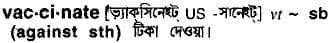 vac·ci·nate [ভ্যাক্‌সিনেইট্ US -সানেইট্] vt ~ sb
(against sth) টিকা দেওয়া।